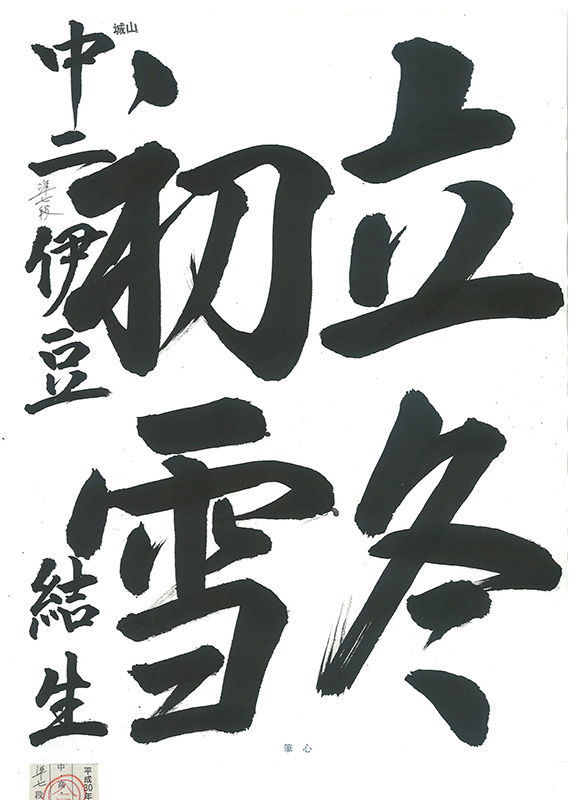 立冬
初雪
城山
中二 準七段 伊豆 結生
心筆
平成30年
中
準七段